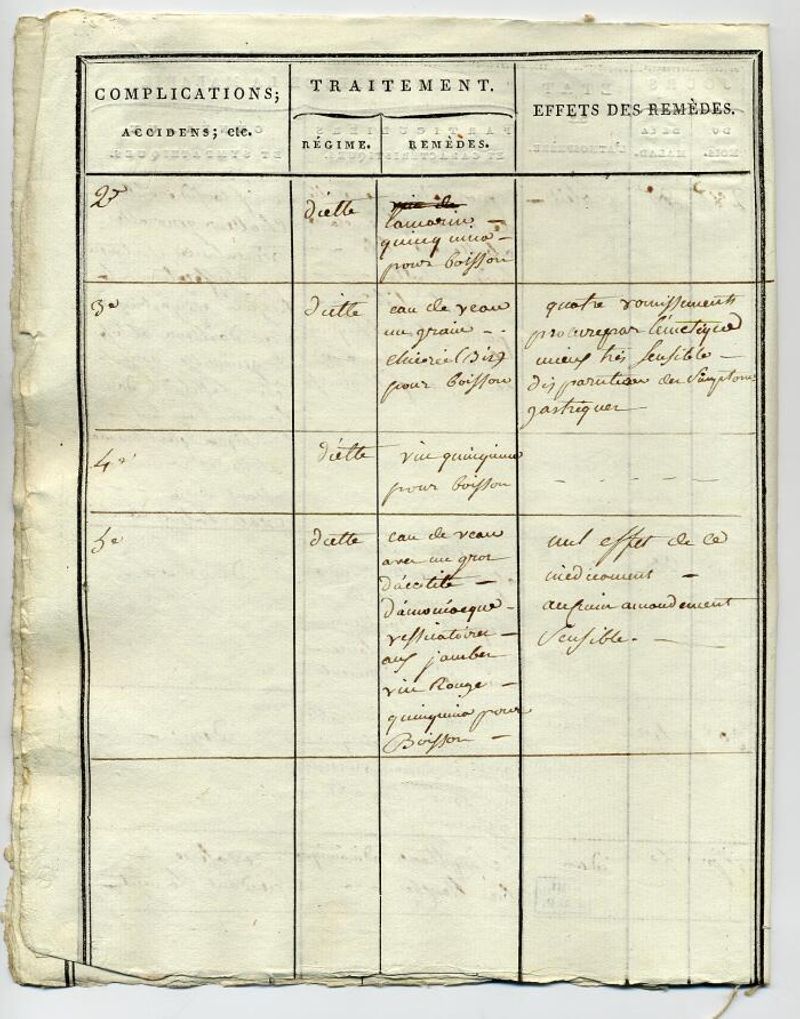 COMPLICATIONS;
ACCIDENS; etc.
TRAITEMENT.
RÉGIME.
REMÈDES.
EFFETS DES REMÈDES.
2e
diette
tamarin -
quinquina -
pour boisson
3e
diette
eau de veau
un grain -.
chicorée (Dix)
pour boisson
quatre vomissements
procuré par l'émétique
mieux très sensible -
disparution des Simptomes
gastriques
4e
diette
vin quinquina
pour boisson
- - - - -
5e
diette
eau de veau
avec un gros
d'acétite -
d'amoniacque -
vessicatoires -
aux jambes
vin Rouge -
quinquina pour
Boisson -
nul effet de ce
médicament -
aucun amandement
Sensible. - -